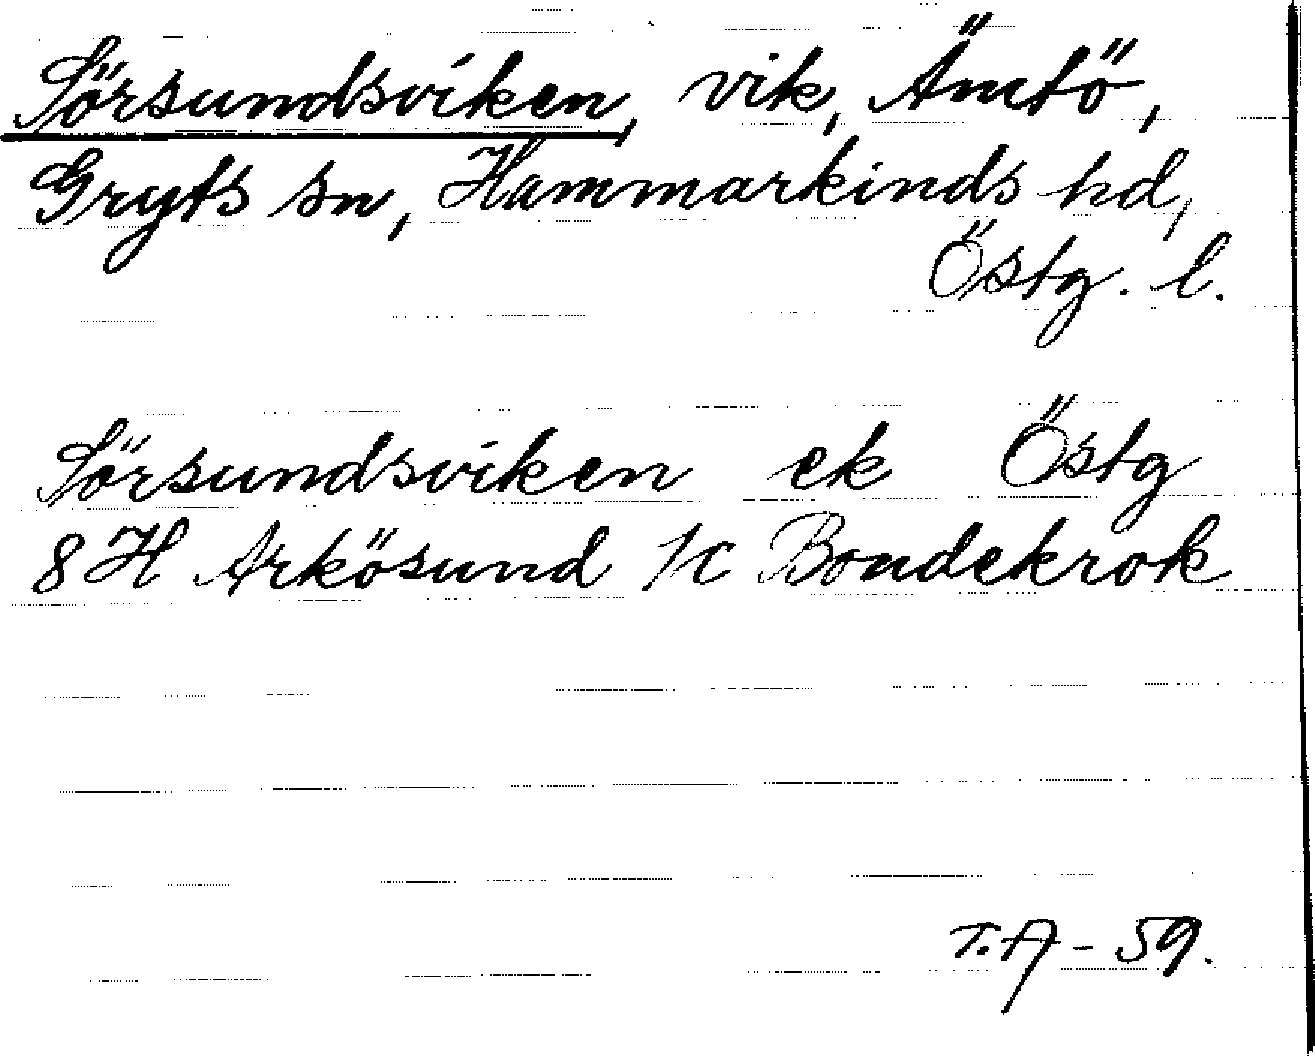 Sörsundsviken, vik, Ämtö,
Gryts sn, Hammarkinds hd,
Östg. l.
Sörsundsviken ek Östg
8H Arkösund 1c Bondekrok
T.A - 59.